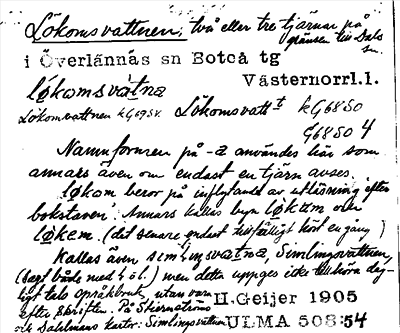 Lökomsvattnen, två eller tre tjärnar på
gränsen till Dals
sn.
i Överlännäs sn Boteå tg
Västernorrl.l.
lø̱komsva̱tna
Lökomsvattnen kG69SV. Lökomsvatt t kG68SO
G68SO 4
Namnformen på -a användes här som
annars även om endast en tjärn avses.
løkom beror på inflytande av utläsning "efter
bokstaven". Annars kallas byn løkum och
løkem. (det senare endast tillfälligt hört en gång)
Kallas även simliŋsva̱tna, Simlingsvattnen,
(sagt både med i o. l.) men detta uppges icke tillhöra dag-
ligt tals språkbruk, utan vara
efter skriften. På Stiernströms
och Dahlmans kartor: Simlingsvattnen
H.Geijer 1905
ULMA 508:54